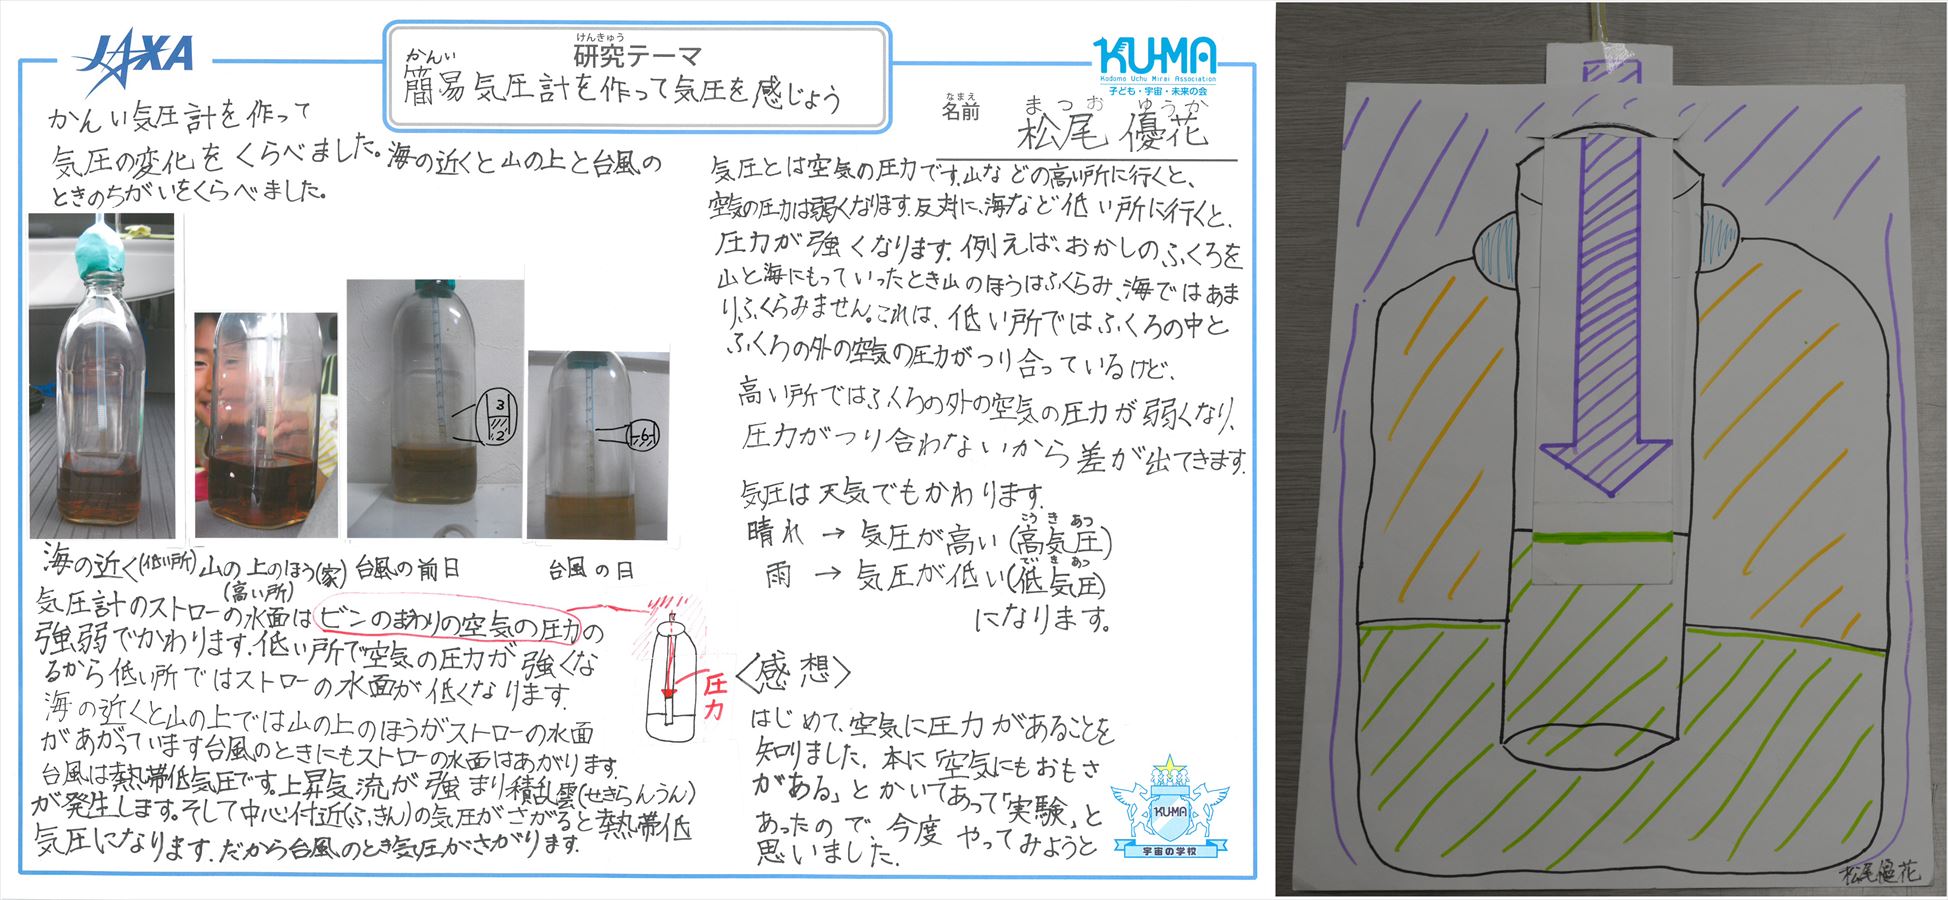 JAXA
けんきゅう
研究テーマ
かんい
簡易気圧計を作って気圧を感じよう
KU-MA
Kodomo Uchu Mirai Association
子ども・宇宙・未来の会
なまえ
名前
まつお ゆうか
松尾 優花
かんい気圧計を作って
気圧の変化をくらべました。海の近くと山の上と台風の
ときのちがいをくらべました。
3
2
6
海の近く(低い所)
山の上のほう(家)
(高い所)
台風の前日
台風の日
気圧計のストローの水面はビンのまわりの空気の圧力の
強弱でかわります。低い所で空気の圧力が強くな
るから低い所ではストローの水面が低くなります。
海の近くと山の上では山の上のほうがストローの水面
があがっています台風のときにもストローの水面はあがります。
台風は熱帯低気圧です。上昇気流が強まり積乱雲(せきらんうん)
が発生します。そして中心付近(ふきん)の気圧がさがると熱帯低
気圧になります。だから台風のとき気圧がさがります。
圧力
気圧とは空気の圧力です。山などの高い所に行くと、
空気の圧力は弱くなります。反対に、海など低い所に行くと、
圧力が強くなります。例えば、おかしのふくろを
山と海にもっていったとき山のほうはふくらみ、海ではあま
りふくらみません。これは、低い所ではふくろの中と
ふくろの外の空気の圧力がつり合っているけど、
高い所ではふくろの外の空気の圧力が弱くなり、
圧力がつり合わないから差が出てきます。
気圧は天気でもかわります。
こうきあつ
晴れ → 気圧が高い(高気圧)
でいきあつ
雨 → 気圧が低い(低気圧)
になります。
〈感想〉
はじめて、空気に圧力があることを
知りました。本に「空気にもおもさ
がある」とかいてあって「実験」と
あったので、今度やってみようと
思いました。
KU-MA
宇宙の学校
松尾優花